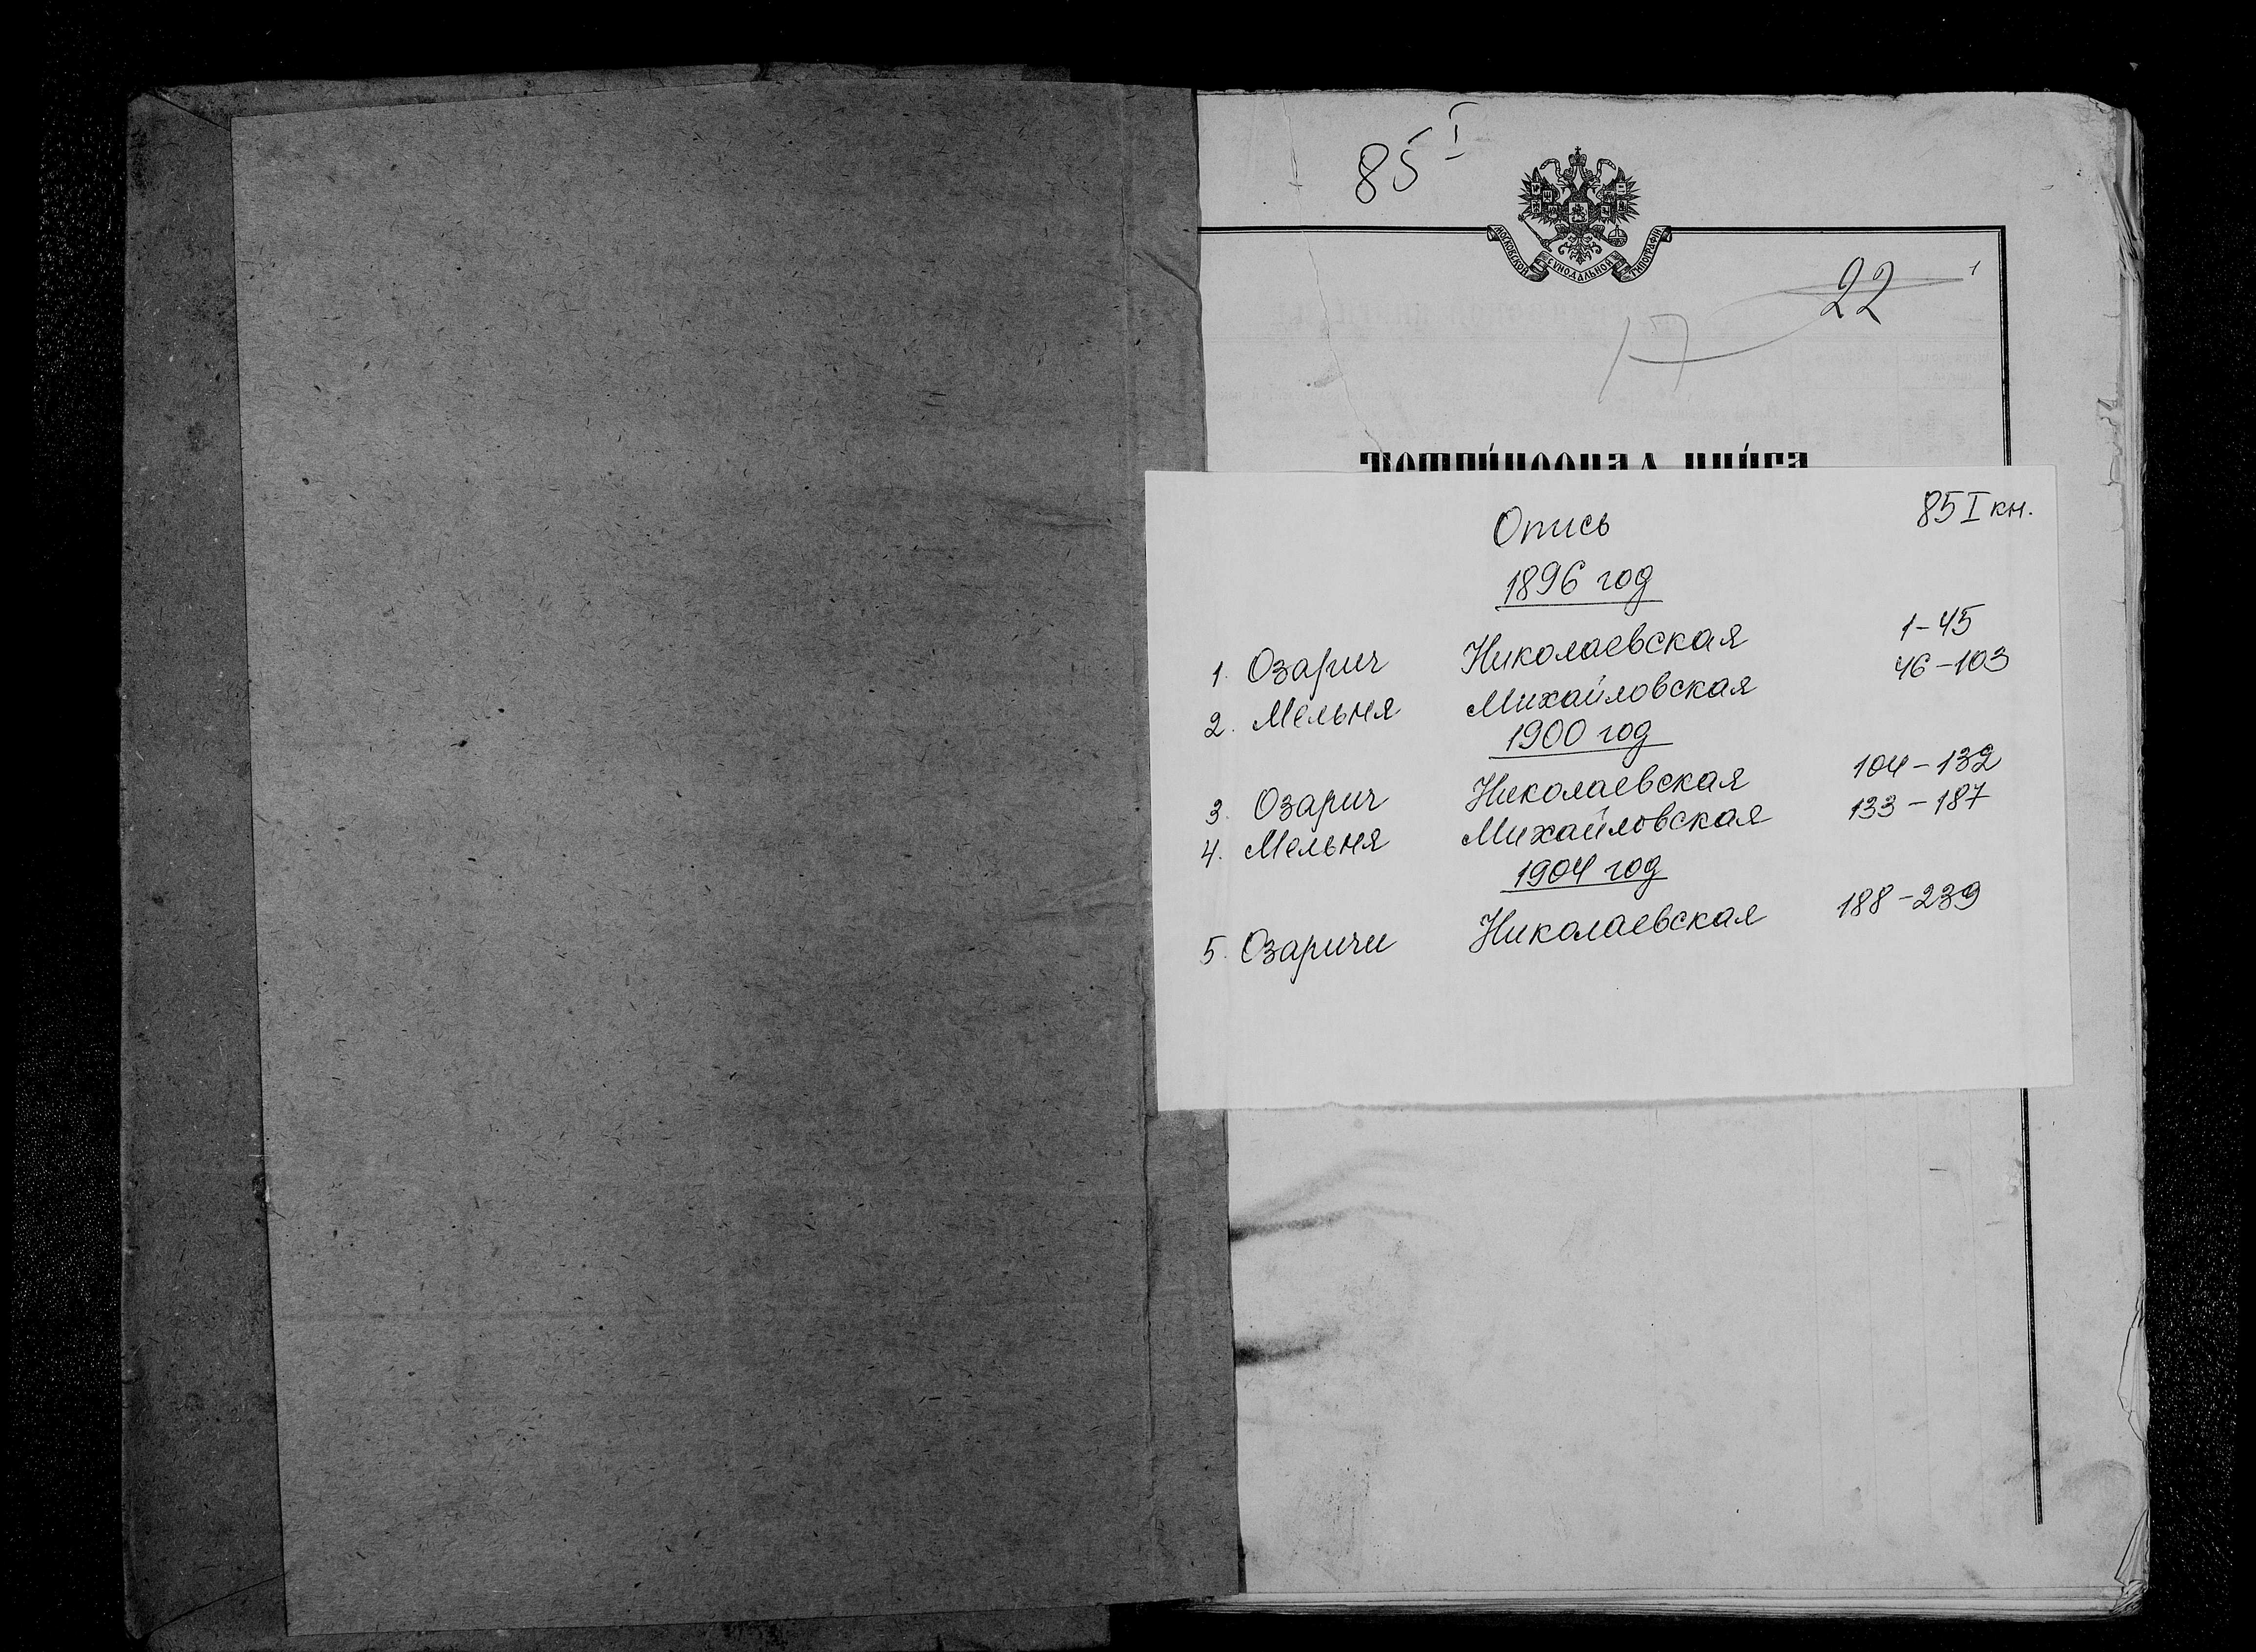 85 I
МОСКОВСКОЙ СѴНОДАЛЬНОЙ ТИПОГРАФІИ
22
1
17
Опись 85 I кн.
1896 год
1. Озарич Николаевская 1-45
2. Мельня Михайловская 46-103
1900 год
3. Озарич Николаевская 104-132
4. Мельня Михайловская 133-187
1904 год
5. Озаричи Николаевская 188-239